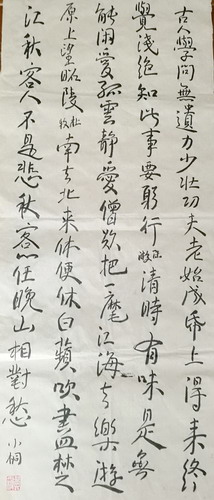 古人學問無遺力少壯功夫老始成紙上得來終
覺淺絕知此事要躬行清時有味是無
能閑愛孤雲靜愛僧欲把一麾江海去樂遊
原上望昭陵杜牧南去北來休便休白蘋吹盡楚
江秋客人不是悲秋客一任晚山相對愁小桐